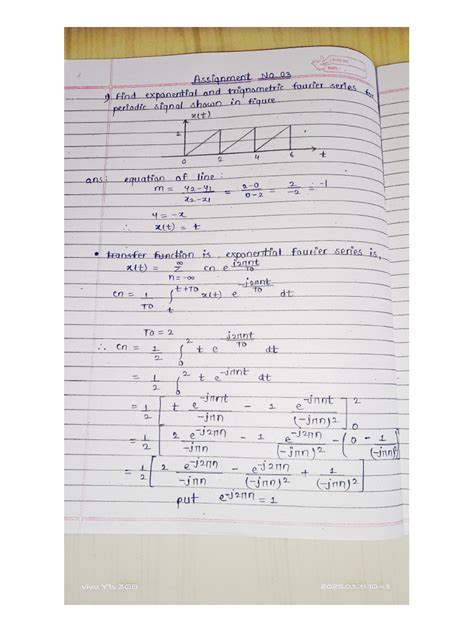 Assignment No. 03
1) Find exponential and trignometric fourier series for
periodic signal shown in figure
x(t)
2
0 2 4 6 t
ans: equation of line:
m = y2-y1 / x2-x1 = 2-0 / 0-2 = 2 / -2 = -1
y = -x
∴ x(t) = t
• transfer function is, exponential fourier series is,
x(t) = ∞ Σ n=-∞ cn e^j2πnt/T0
cn = 1/T0 ∫ t+T0 t x(t) e^-j2πnt/T0 dt
T0 = 2
∴ cn = 1/2 ∫ 2 0 t e^-j2πnt/T0 dt
= 1/2 ∫ 2 0 t e^-jπnt dt
= 1/2 [ t e^-jπn / -jπn - 1 e^-jπn / (-jπn)2 ] 2 0
= 1/2 [ 2 e^-j2πn / -jπn - 1 e^-j2πn / (-jπn)2 - (0 - 1 / (-jπn)2
= 1/2 [ 2 e^-j2πn / -jπn - e^-j2πn / (-jπn)2 + 1 / (-jπn)2 ]
put e^-j2πn = 1
vivo Y1s 3GB